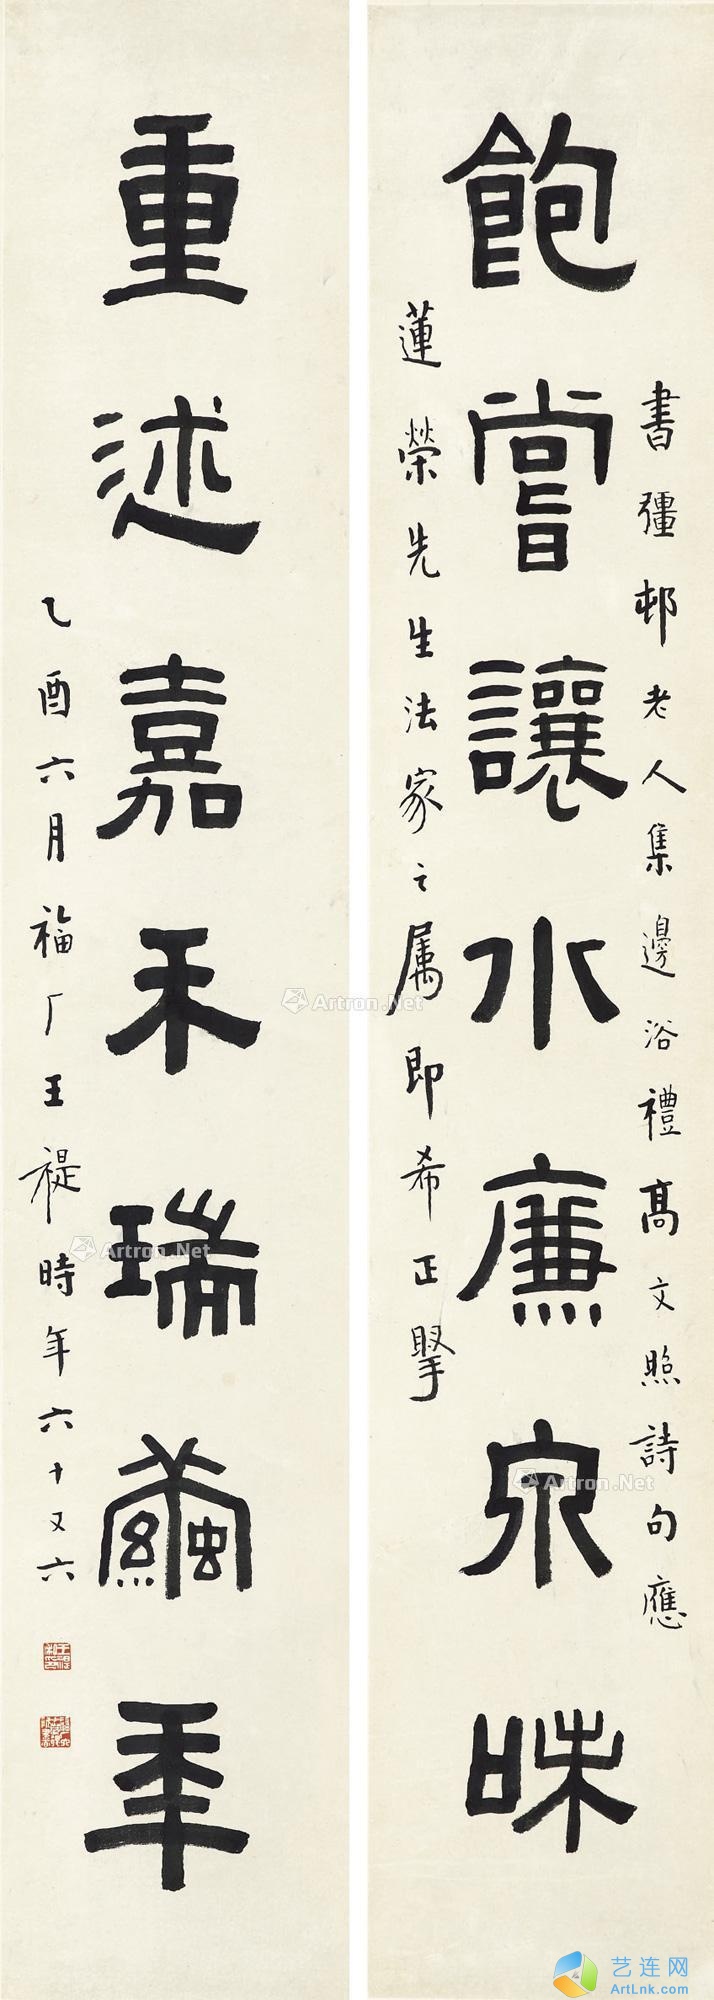 飽嘗讓水廉泉味
書彊邨老人集邊浴禮高文照詩句應
蓮榮先生法家之属即希正掔
重述嘉禾瑞繭年
乙酉六月福厂王禔時年六十又六
Artron.Net
Artron.Net
Artron.Net
Artron.Net
艺连网
ArtLnk.com